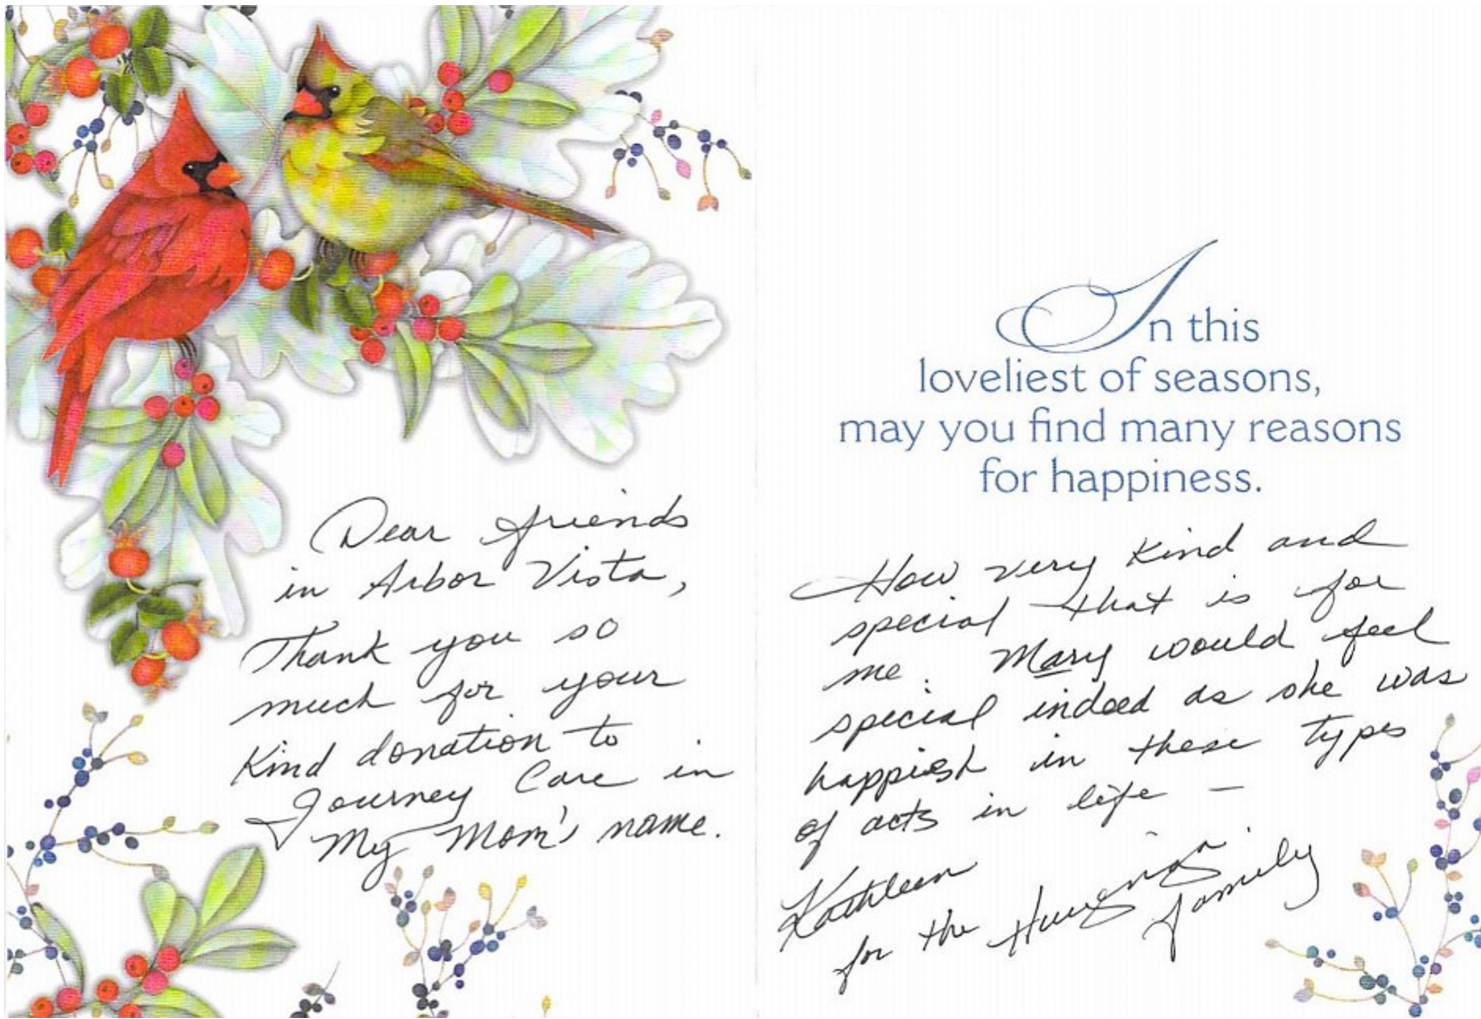 Dear friends
in Arbor Vista,
Thank you so
much for your
Kind donation to
Journey Care in
My Mom's name.
In this
loveliest of seasons,
may you find many reasons
for happiness.
How very kind and
special that is for
me. Mary would feel
special indeed as she was
happiest in these types
of acts in life –
Kathleen
for the
family